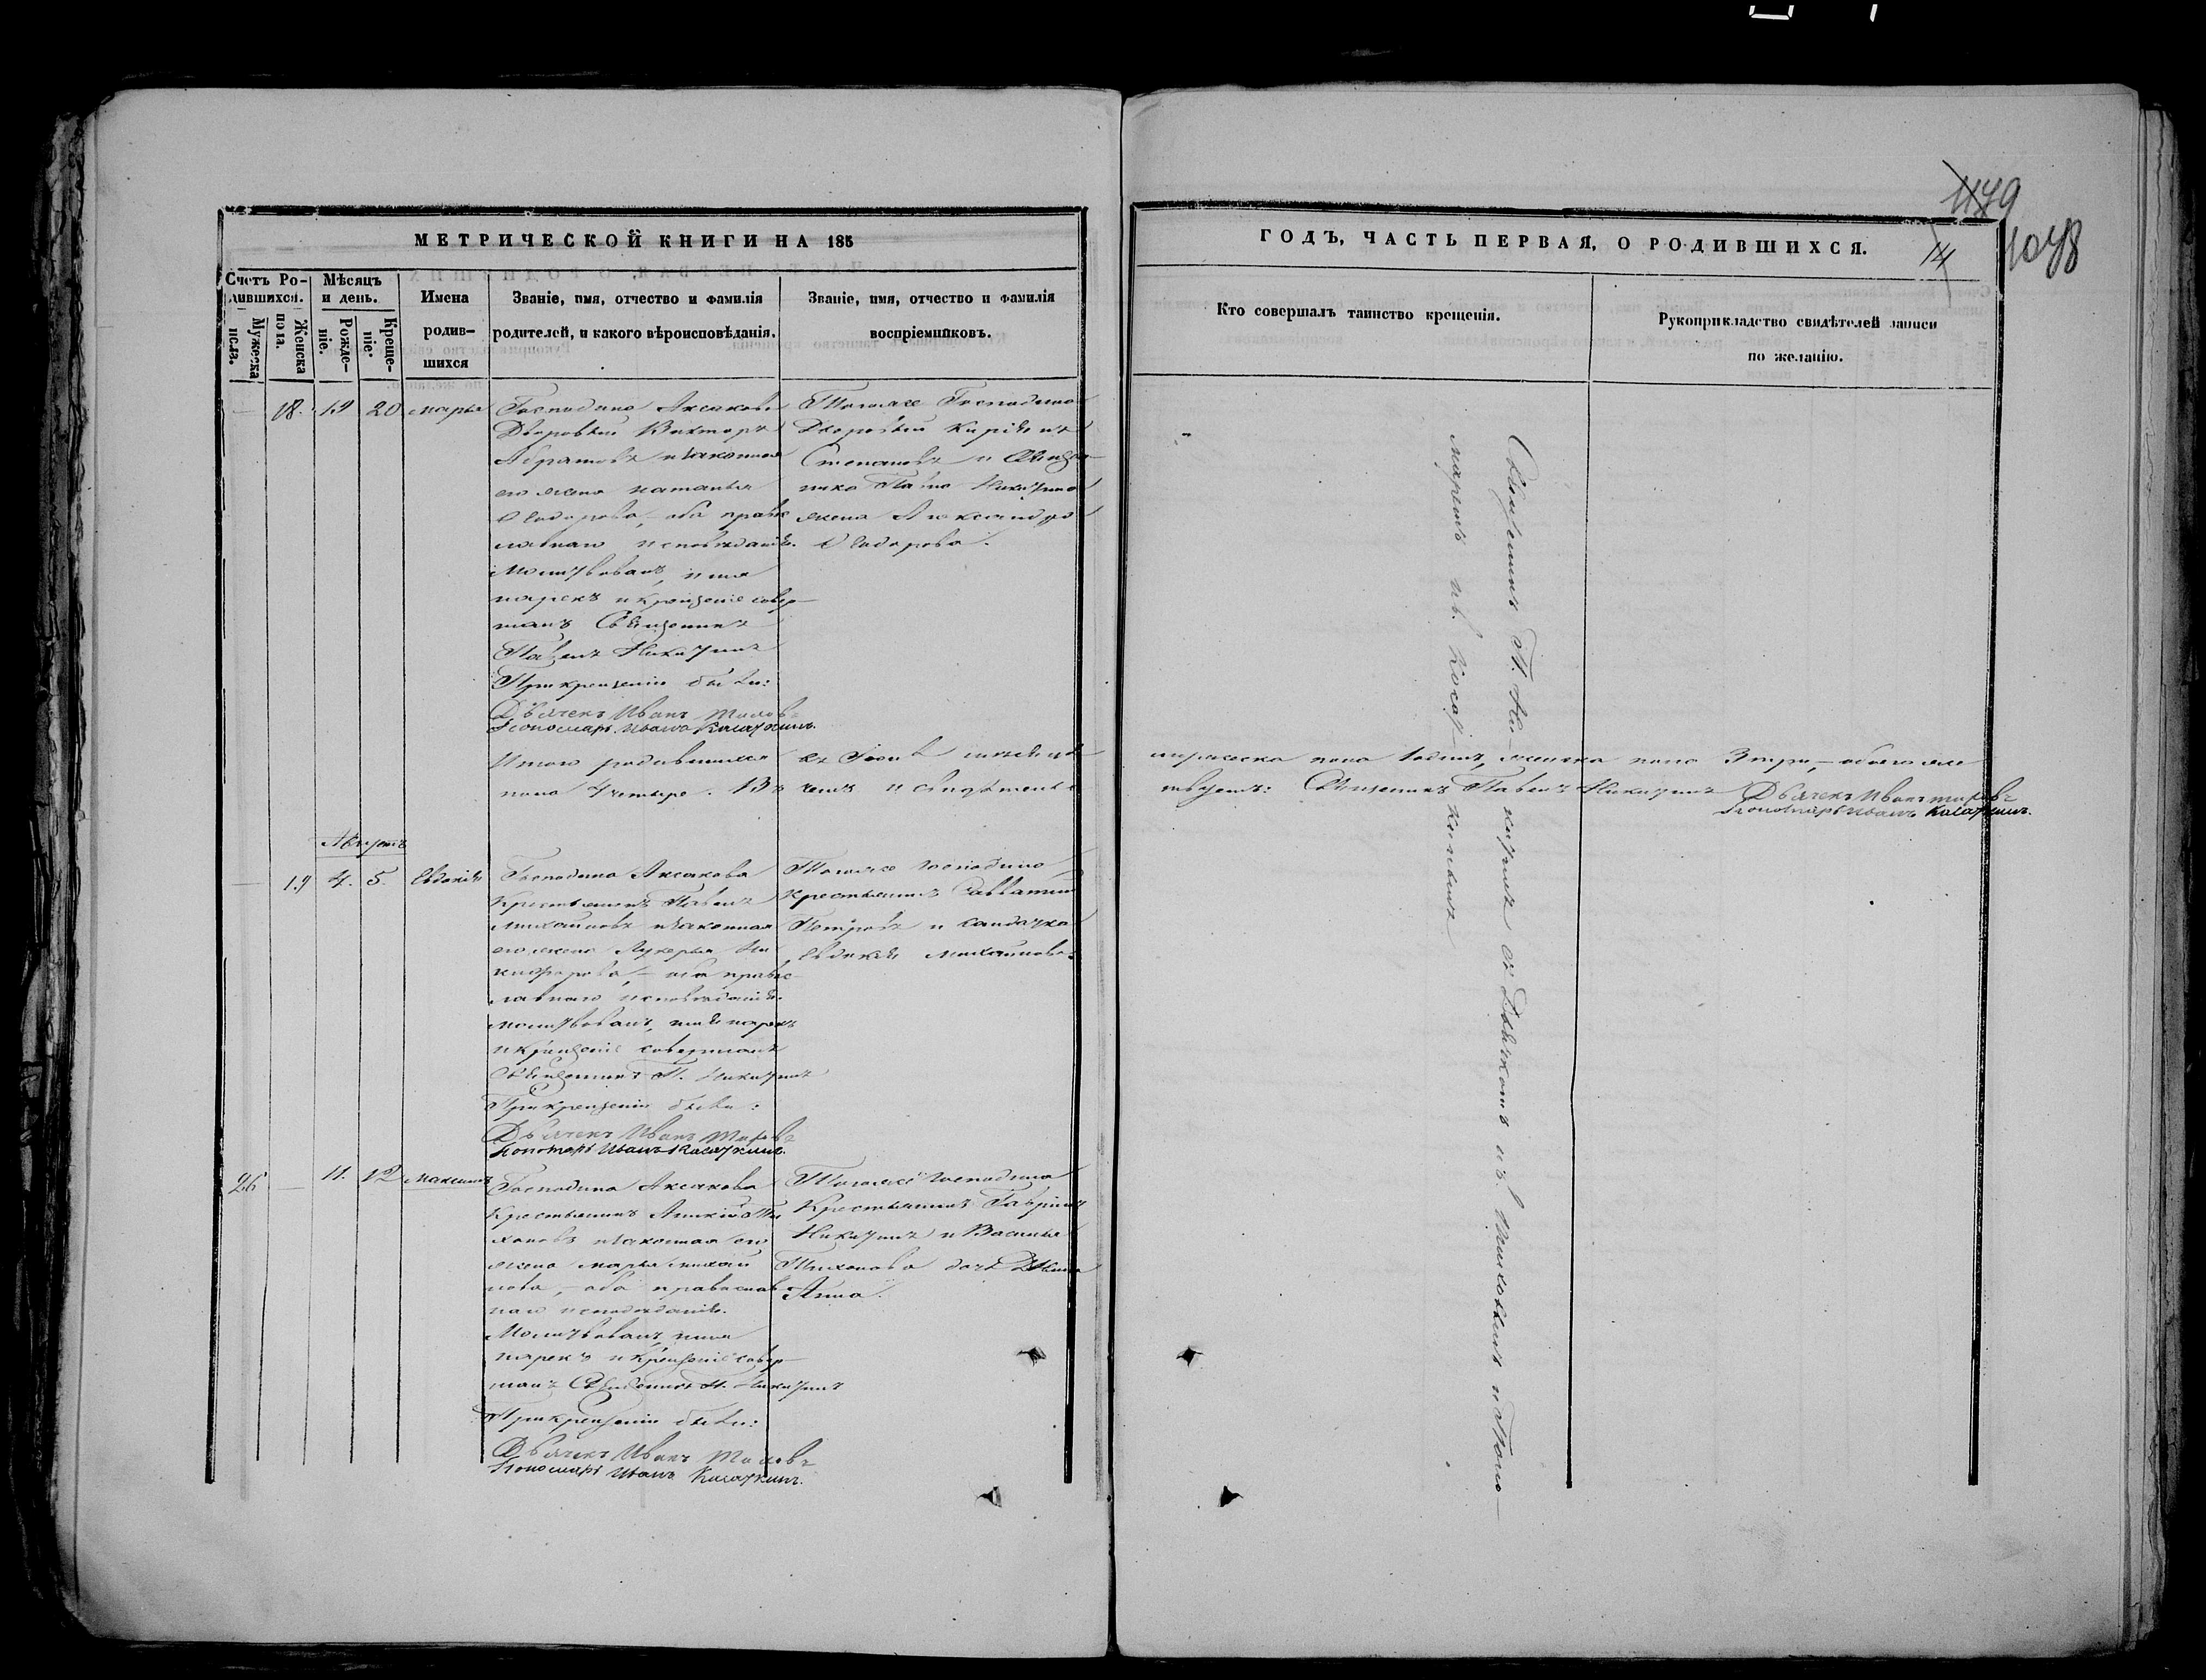 МЕТРИЧЕСКОЙ КНИГИ НА 185
ГОДЪ, ЧАСТЬ ПЕРВАЯ, О РОДИВШИХСЯ.
1048
Счетъ Ро-
дившихся.
Мужеска
пола.
Женска
пола.
Мѣсяцъ
и день.
Рожде-
ніе.
Креще-
ніе.
Имена
родив-
шихся
Званіе, имя, отчество и фамилія
родителей, и какого вѣроисповѣданія.
Званіе, имя, отчество и фамилія
воспріемниковъ.
Кто совершалъ таинство крещенія.
Рукоприкладство свидѣтелей записи
по желанію.
18. 19 20 Марья
Господина Аксакова
Дворовый Викторъ
Абрамовъ и законная
его жена Наталья
Ѳедорова, оба правос
лавнаго исповѣданія.
Молитвовалъ, имя
нарекъ и крещеніе совер-
шалъ Священникъ
Павелъ Никитинъ
При крещеніи были:
Дьячекъ Иванъ
Пономарь Иванъ Касаткинъ.
Тогоже Господина
Дворовый
Степановъ и Священ-
ника Павла Никитина
жена Александра
Ѳедорова.
Итого родившихся въ мѣсяцѣ
мужеска пола 1 одинъ, женска пола 3 три, обоего же
пола 4 четыре. Въ чемъ и свидѣтель
ствуемъ: Священникъ Павелъ Никитинъ Дьячекъ Иванъ
Пономарь Иванъ Касаткинъ.
Мартъ
19 4. 5. Евдокія
Господина Аксакова
Крестьянинъ Павелъ
Михайловъ и законная
его жена Лукерья Ни
кифорова, оба правос-
лавнаго исповѣданія.
Молитвовалъ, имя нарекъ
и крещеніе совершалъ
Священникъ П. Никитинъ
При крещеніи были:
Дьячекъ Иванъ
Пономарь Иванъ Касаткинъ.
Тогоже Господина
Крестьянинъ Савватій
Петровъ и солдатка
Евдокія Михайлова.
26 11. 12 Максимъ
Господина Аксакова
Крестьянинъ Ти
хоновъ и законная его
жена Марья Михай
лова, оба православ
наго исповѣданія.
Молитвовалъ, имя
нарекъ и крещеніе совер-
шалъ Священникъ П. Никитинъ
При крещеніи были:
Дьячекъ Иванъ
Пономарь Иванъ Касаткинъ.
Тогоже Господина
Крестьянинъ Гаврилъ
Никитинъ и Василья
Тихонова дочь
Анна.
Священникъ П. Ни-
китинъ съ Дьячкомъ и Поно-
маремъ Ив.